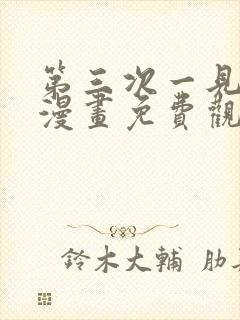 第三次一見
漫畫免費觀
鈴木大輔 肋